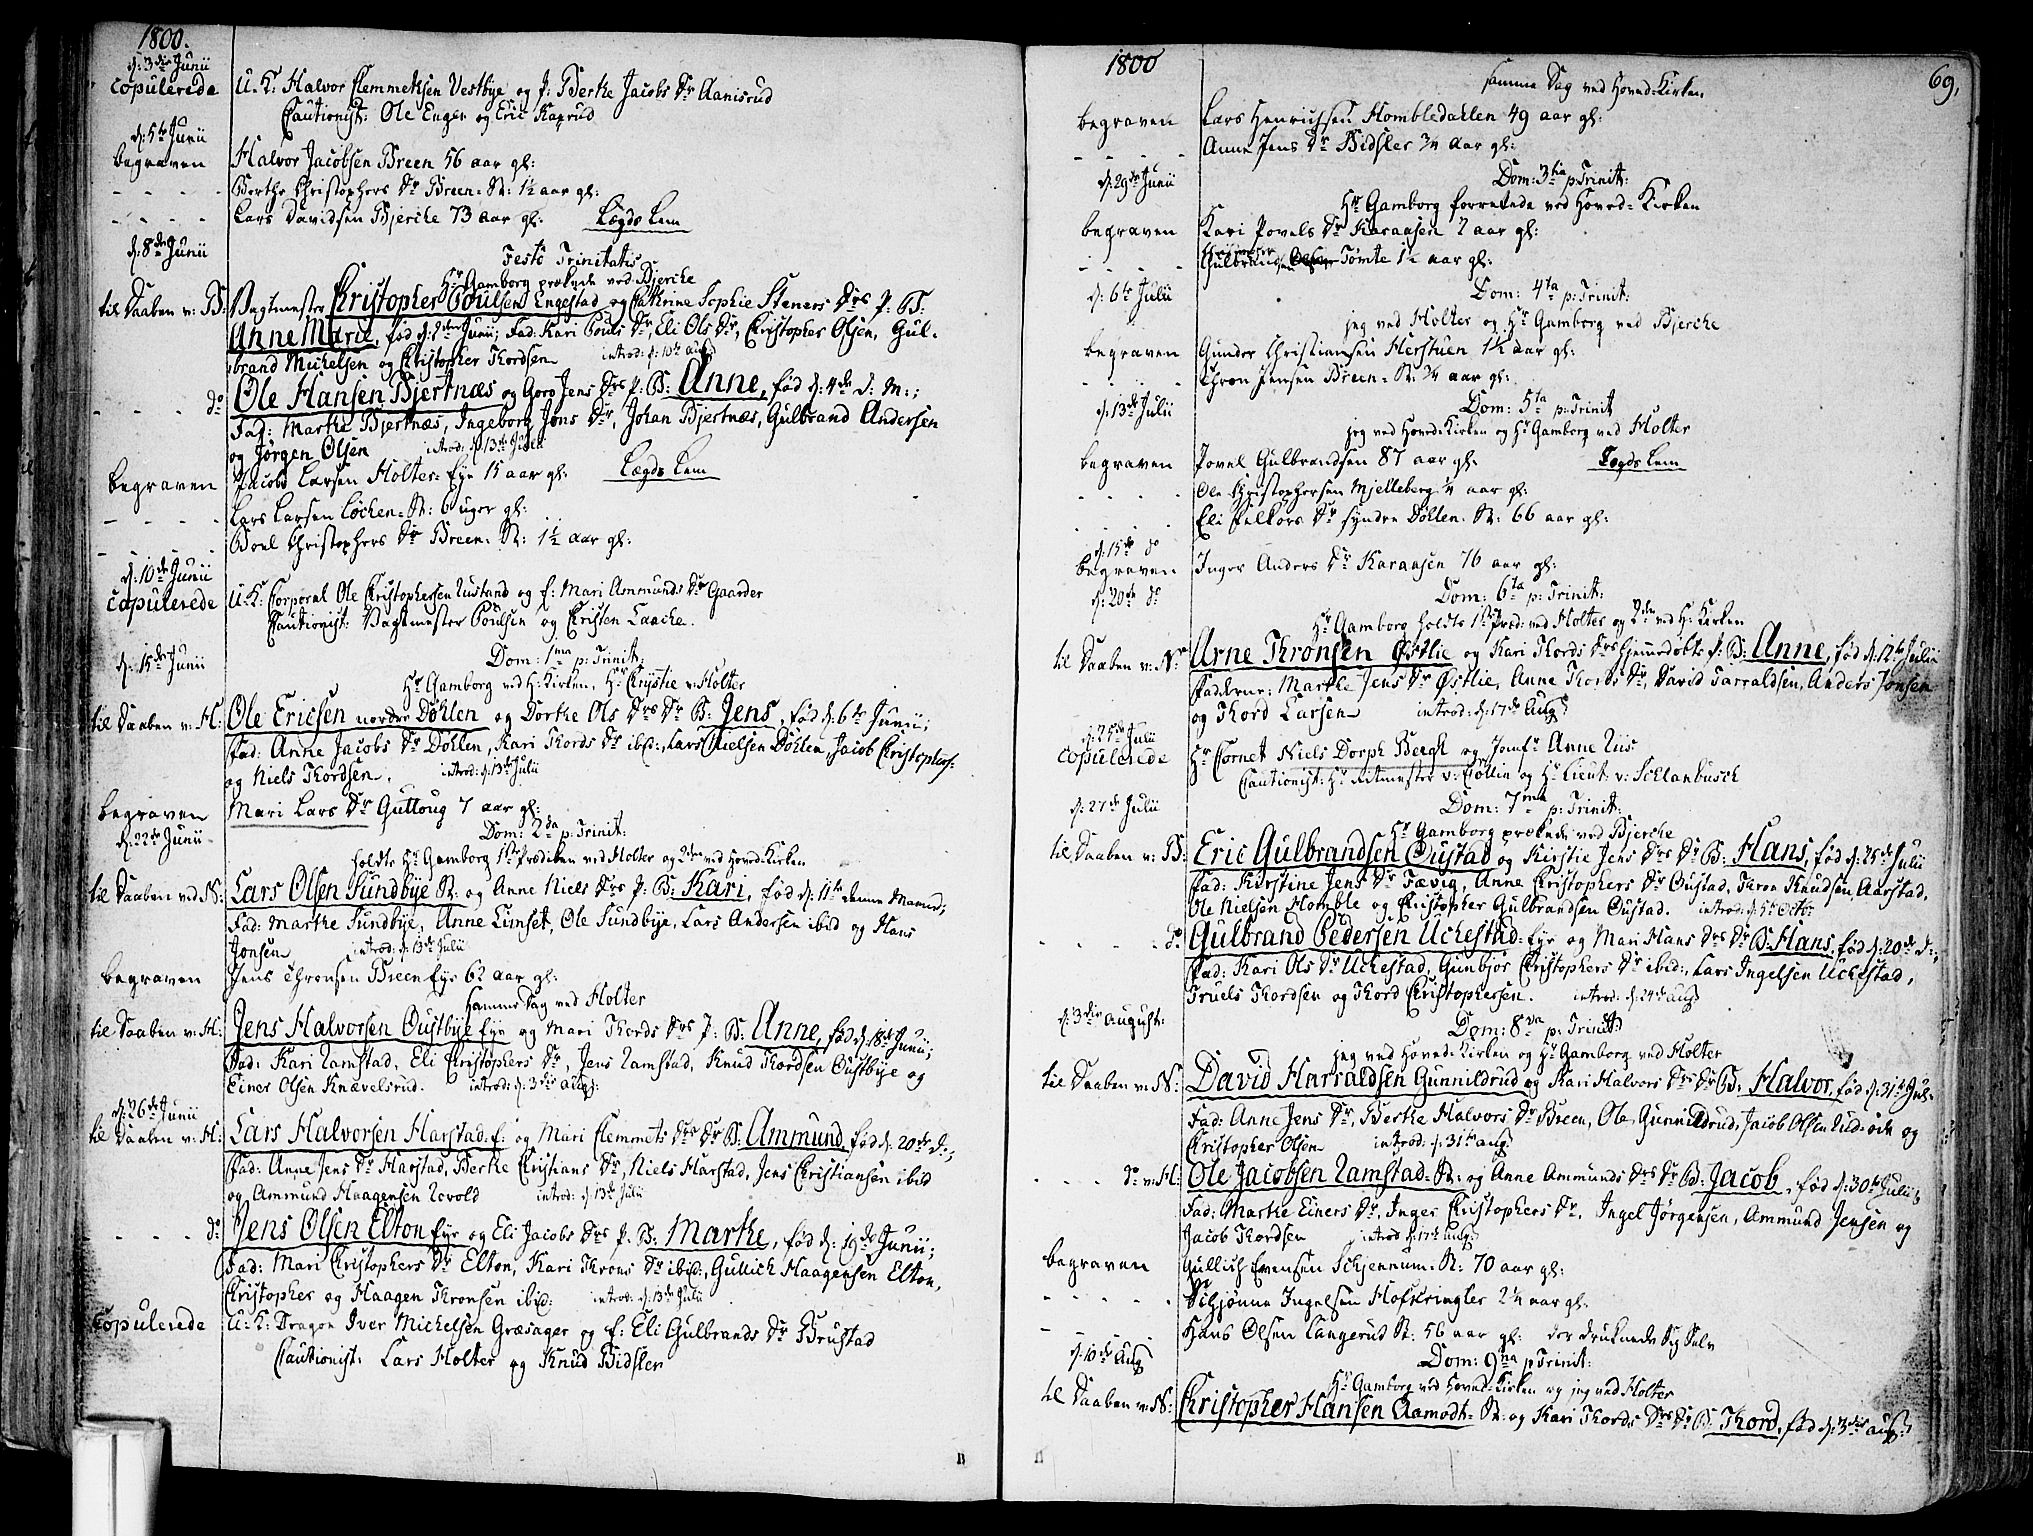 1800.
d: 3die Junii
copulerede U: K: Halvor Clemmetsen Vestbye og P: Berthe Jacobs Dr Aanisrud
Cautionist: Ole Enger og Eric Kaprud
d: 5te Junii
begraven Halvor Jacobsen Breen 56 aar gl:
- - - - Berthe Christophers Dr Breen-St: 1½ aar gl:
- - - - Lars Davidsen Bjerche 73 aar gl: Lægds Lem
d: 8de Junii Festo Trinitatis
Hr Gamborg prækede ved Bjerche
til Daaben v: B: Vagtmester Christopher Poulsen Engestad og Cathrine Sophie Steners Drs P: B:
Anne Marie, fød d: 2den Junii; Fad: Kari Pouls Dr, Eli Ols Dr, Christopher Olsen, Gul-
brand Michelsen og Christopher Thordsen introd: d: 10de aug
- - - - do Ole Hansen Bjertnæs og Goro Jens Drs P: B: Anne, fød d: 4de d: M:;
Fad: Marthe Bjertnæs, Ingeborg Jens Dr, Johan Bjertnæs, Gulbrand Andersen
og Jørgen Olsen introd: d: 13de Julii
begraven Jacob Larsen Holter-Eye 15 aar gl: Lægds Lem
- - - - Lars Larsen Løchen-St: 6 uger gl:
- - - - Boel Christophers Dr Breen-St: 1½ aar gl:
d: 10de Junii
copulerede U: K: Corporal Ole Christophersen Rustand og f: Mari Ammunds Dr Gaarder
Cautionist: Vagtmester Poulsen og Christen Laache.
d: 15de Junii Dom: 1ma p: Trinit:
Hr Gamborg ved H: Kirken, Hr Chrystie v: Holter
til Daaben v: H: Ole Ericsen nordre Døhlen og Dorthe Ols Drs Dr B: Jens, fød d: 6te Junii;
Fad: Anne Jacobs Dr Døhlen, Kari Thords Dr ibid:, Lars Nielsen Døhlen, Jacob Christophers:
og Niels Thordsen. introd: d: 13de Julii
begraven Mari Lars Dr Guttoug 7 aar gl:
d: 22de Junii Dom: 2da p: Trinit:
holdte Hr Gamborg 1ste Prædiken ved Holter og 2den ved Hoved-Kirken
til Daaben ved N: Lars Olsen Sundbye St: og Anne Niels Drs P: B: Kari, fød d: 11te denne Maaned;
Fad: Marthe Sundbye, Anne Limset, Ole Sundbye, Lars Andersen ibid og Hans
Jonsen introd: d: 13de Julii
begraven Jens Thronsen Breen Eye 62 aar gl:
Samme Dag ved Holter
til Daaben v: H: Jens Halvorsen Oustbye Eye og Mari Thords Drs P: B: Anne, fød d: 18de Junii;
Fad: Kari Ramstad, Eli Christophers Dr, Jens Ramstad, Knud Thordsen Oustbye og
Einer Olsen Knævelsrud. introd: d: 3die aug:
d: 26de Junii
til Daaben v: H: Lars Halvorsen Harstad-E: og Mari Clemmets Drs Dr B: Ammund, fød d: 20de d:;
Fad: Anne Jens Dr Harstad, Berthe Christians Dr, Niels Harstad, Jens Christiansen ibid
og Ammund Haagensen Revold introd: d: 13de Julii
- - - - do Jens Olsen Elton Eye og Eli Jacobs Drs P: B: Marthe, fød d: 19de Junii;
Fad: Mari Christophers Dr Elton, Kari Throns Dr ibid:, Gullich Haagensen Elton,
Christopher og Haagen Thronsen ibid: introd: d: 13de Julii
copulerede U: K: Dragon Iver Michelsen Græsager og f: Eli Gulbrands Dr Brustad
Cautionist: Lars Holter og Knud Bidsler
B
1800
69,
samme Dag ved Hoved-Kirken
begraven Lars Henrichsen Hombledahlen 49 aar gl:
- - - - Anne Jens Dr Bidsler ¾ aar gl:
d: 29de Junii Dom: 3tia p: Trinit:
Hr Gamborg forrettede ved Hoved-Kirken
begraven Kari Povels Dr Karaasen 2 aar gl:
- - - - Gulbrandsen Tømte 1½ aar gl:
d: 6te Julii Dom: 4ta p: Trinit:
jeg ved Holter og Hr Gamborg ved Bjerche
begraven Gunder Christiansen Herstuen 1½ aar gl:
- - - - Thron Jensen Breen-St: ¾ aar gl:
d: 13de Julii Dom: 5ta p: Trinit
jeg ved Hoved-Kirken og Hr Gamborg ved Holter
begraven Povel Gulbrandsen 87 aar gl: Lægds Lem
- - - - Ole Christophersen Mjelleberg ¼ aar gl:
- - - - Eli Pelkors Dr syndre Døhlen-St: 66 aar gl:
d: 15de do
begraven Inger Anders Dr Karaasen 76 aar gl:
d: 20de do Dom: 6ta p: Trinit:
Hr Gamborg holdte 1ste Præd: ved Holter og 2den ved H: Kirken
til Daaben v: N: Arne Thronsen Østlie og Kari Thords Drs Hjemmedøbte p: B: Anne, fød d: 12te Julii
Fadderne: Marthe Jens Dr Østlie, Anne Thords Dr, David Harraldsen, Anders Jonsen
og Thord Larsen introd: d: 17de Aug:
d: 25de Julii
copulerede Hr Cornet Niels Dorph Bergh og Jomfr Anne Riis
Cautionist: Hr Ritmester v: Collin og Hr Lieut: v: Schlanbusch
d: 27de Julii Dom: 7ma p: Trinit:
Hr Gamborg prækede ved Bjerche
til Daaben v: B: Eric Gulbrandsen Oustad og Kirstie Jens Drs Dr B: Hans, fød d: 25de Julii
Fad: Kirstine Jens Dr Fævig, Anne Christophers Dr Oustad, Thron Knudsen Aarstad,
Ole Nielsen Homble og Christopher Gulbrandsen Oustad. introd: d: 5te Octb:
- - - - do Gulbrand Pedersen Uchestad-Eye og Mari Hans Drs Dr B: Hans, fød d: 20de d:;
Fad: Kari Ols Dr Uchestad, Gunbjør Christophers Dr ibid:, Lars Ingelsen Uchestad,
Truels Thordsen og Thord Christophersen. introd: d: 24de aug
d: 3die august: Dom: 8va p: Trinit:
jeg ved Hoved-Kirken og Hr Gamborg ved Holter
til Daaben v: N: David Harraldsen Gunnildrud og Kari Halvors Drs Dr B: Halvor, fød d: 31te Jul:
Fad: Anne Jens Dr, Berthe Halvors Dr Breen, Ole Gunnildrud, Jacob Olsen Rud-eie og
Christopher Olsen introd: d: 31te aug
- - - - do v: H: Ole Jacobsen Ramstad-St: og Anne Ammunds Drs Dr B: Jacob, fød d: 30te Julii;
Fad: Marthe Einers Dr, Inger Christophers Dr, Ingel Jørgensen, Ammund Jensen og
Jacob Thordsen introd d: 17de aug:
begraven Gullich Evensen Schjennum-St: 70 aar gl:
- - - - Schjønne Ingelsen Hofscringler 2¼ aar gl:
- - - - Hans Olsen Langerud St: 56 aar gl: der druknede Sig Selv
d: 10de Aug Dom: 9na p Trinit:
Hr Gamborg ved Hoved-Kirken og jeg ved Holter
til Daaben v: N: Christopher Hansen Aamodt-St: og Kari Thords Drs Dr B: Thord, fød d: 3die aug: